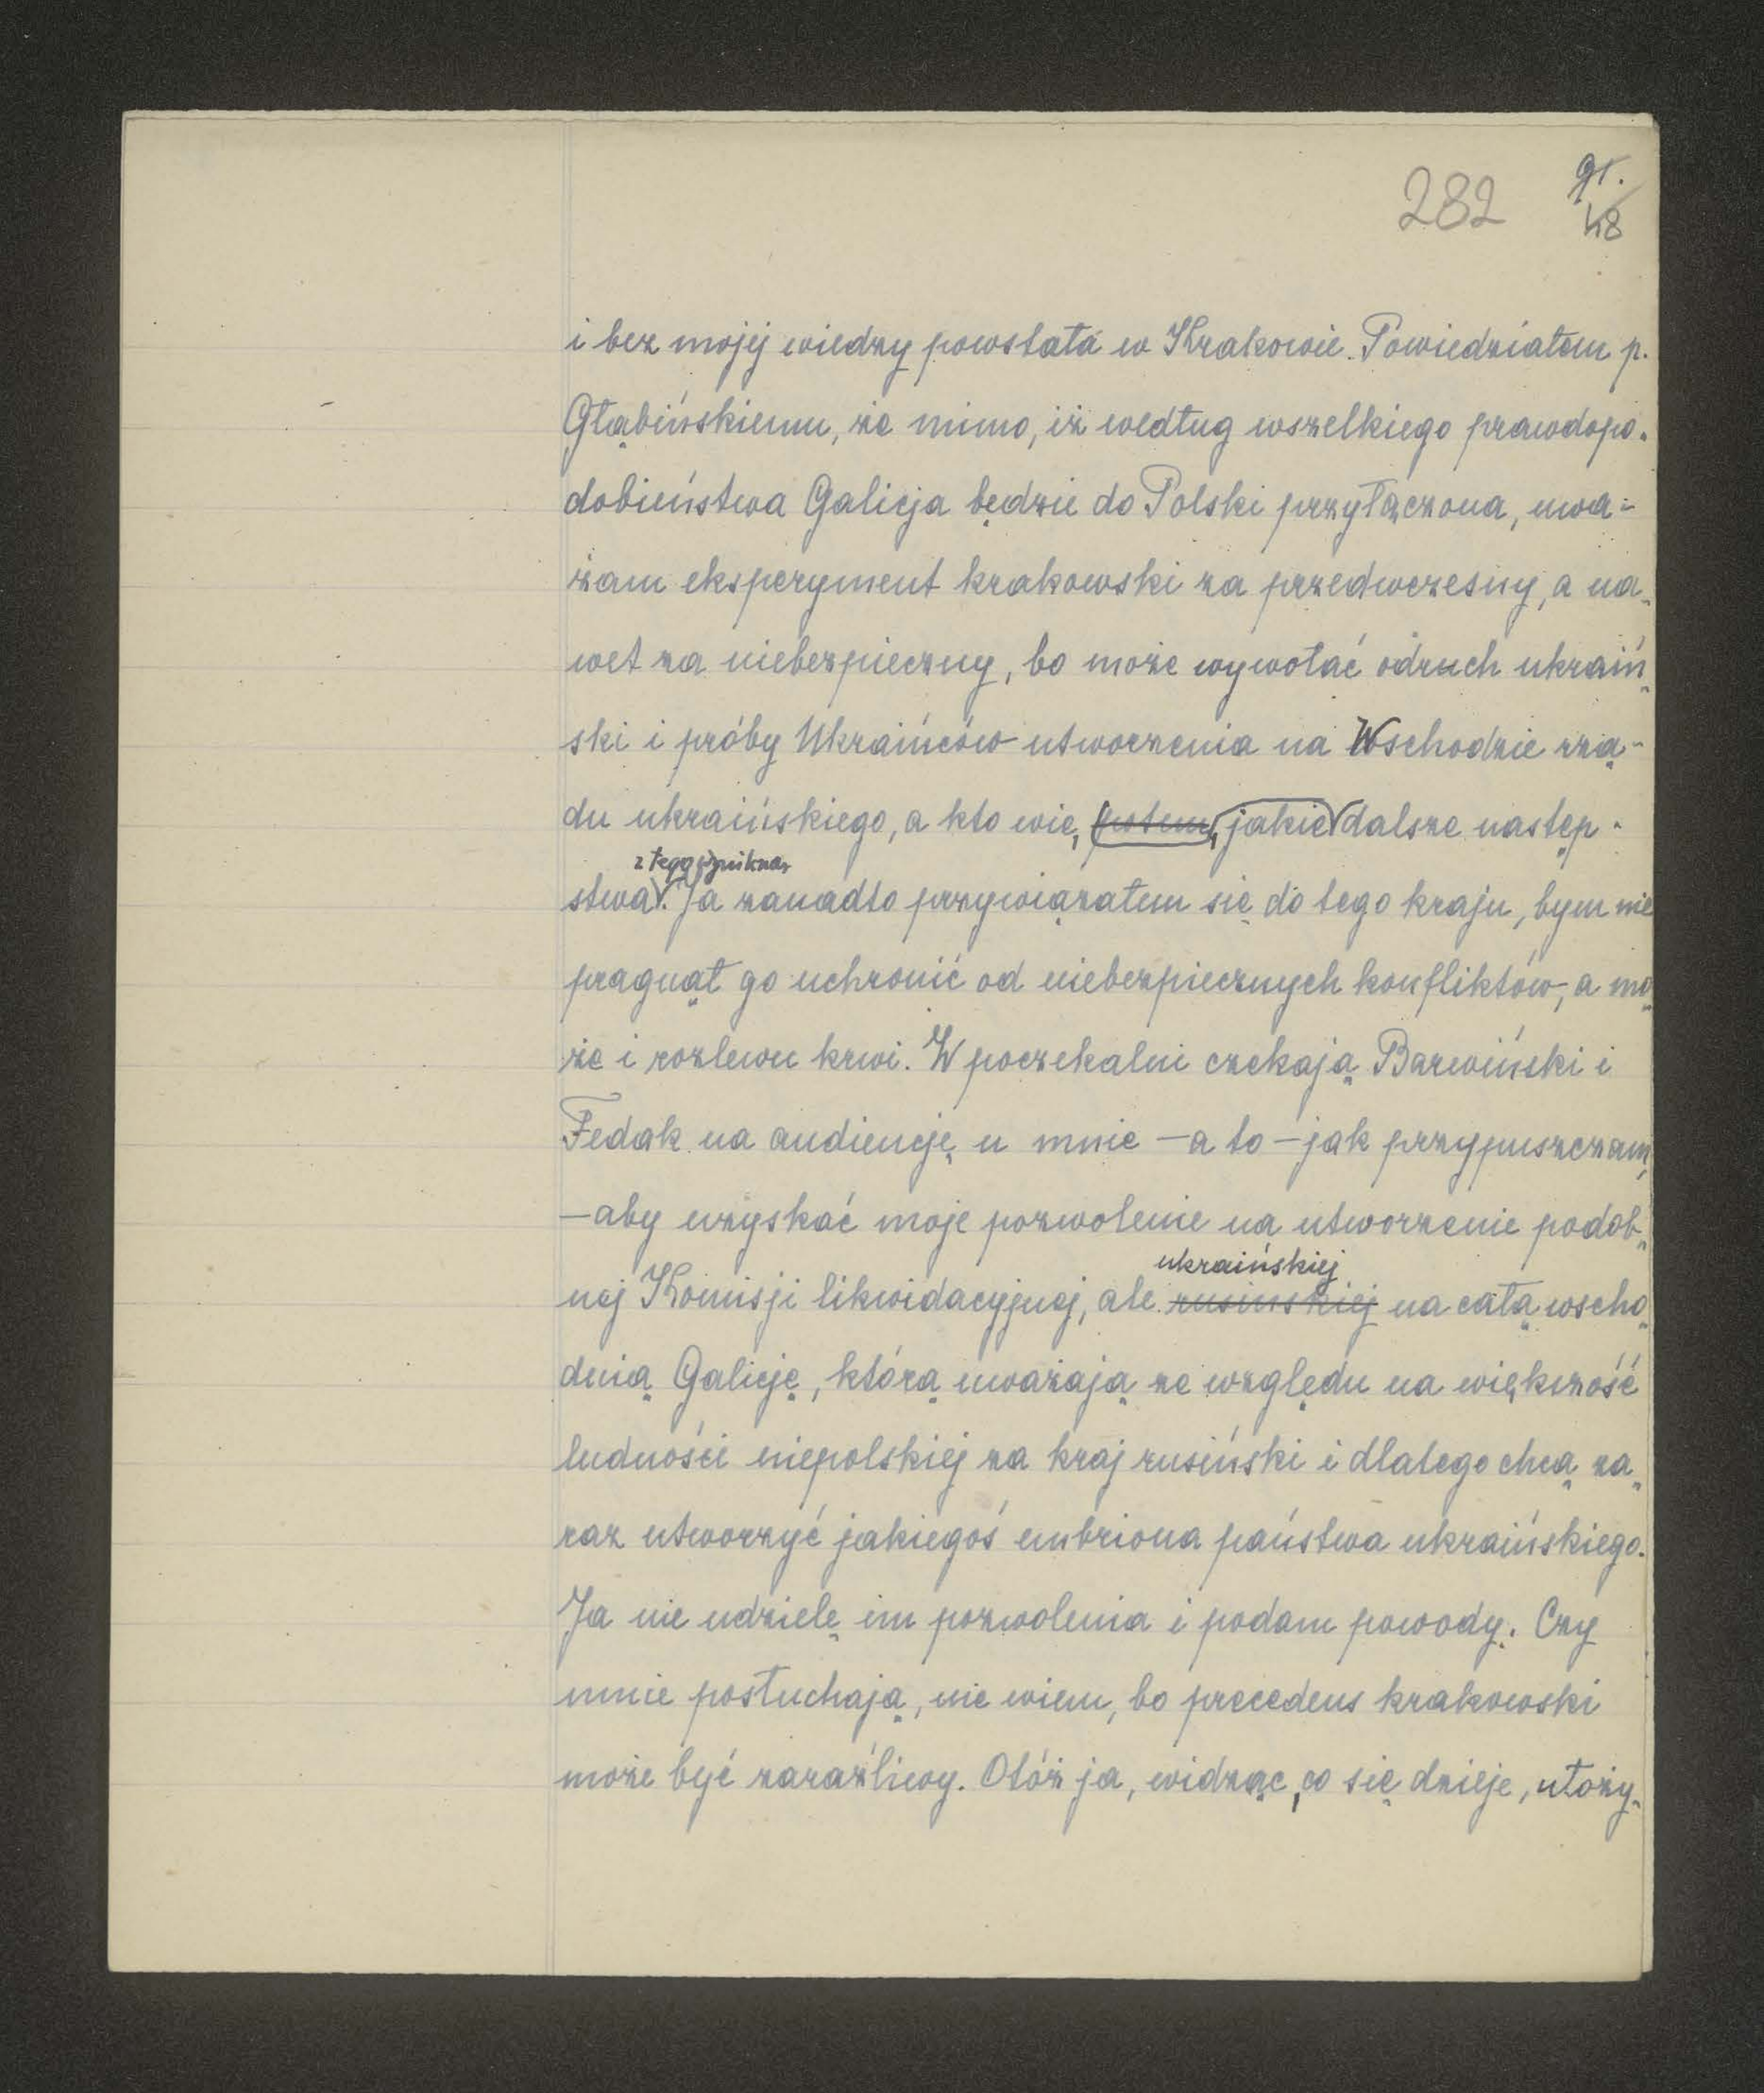 282
91.
48
i bez mojej wiedzy powstała w Krakowie. Powiedziałem p.
Głąbińskiemu, że mimo, iż według wszelkiego prawdopo-
dobieństwa Galicja będzie do Polski przyłączona, uwa-
żam eksperyment krakowski za przedwczesny, a na-
wet za niebezpieczny, bo może wywołać odruch ukraiń-
ski i próby Ukraińców utworzenia na Wschodzie rzą-
du ukraińskiego, a kto wie, potem, jakie dalsze następ-
z tego wynikną
stwa. Ja zanadto przywiązałem się do tego kraju, bym nie
pragnął go uchronić od niebezpiecznych konfliktów, a mo-
że i rozlewu krwi. W poczekalni czekają Barwiński i
Fedak na audiencję u mnie – a to – jak przypuszczam,
– aby uzyskać moje pozwolenie na utworzenie podob-
ukraińskiej
nej Komisji likwidacyjnej, ale rusińskiej na całą wscho-
dnią Galicję, którą uważają ze względu na większość
ludności niepolskiej za kraj rusiński i dlatego chcą za-
raz utworzyć jakiegoś embriona państwa ukraińskiego.
Ja nie udzielę im pozwolenia i podam powody. Czy
mnie posłuchają, nie wiem, bo precedens krakowski
może być zaraźliwy. Otóż ja, widząc, co się dzieje, ułoży-